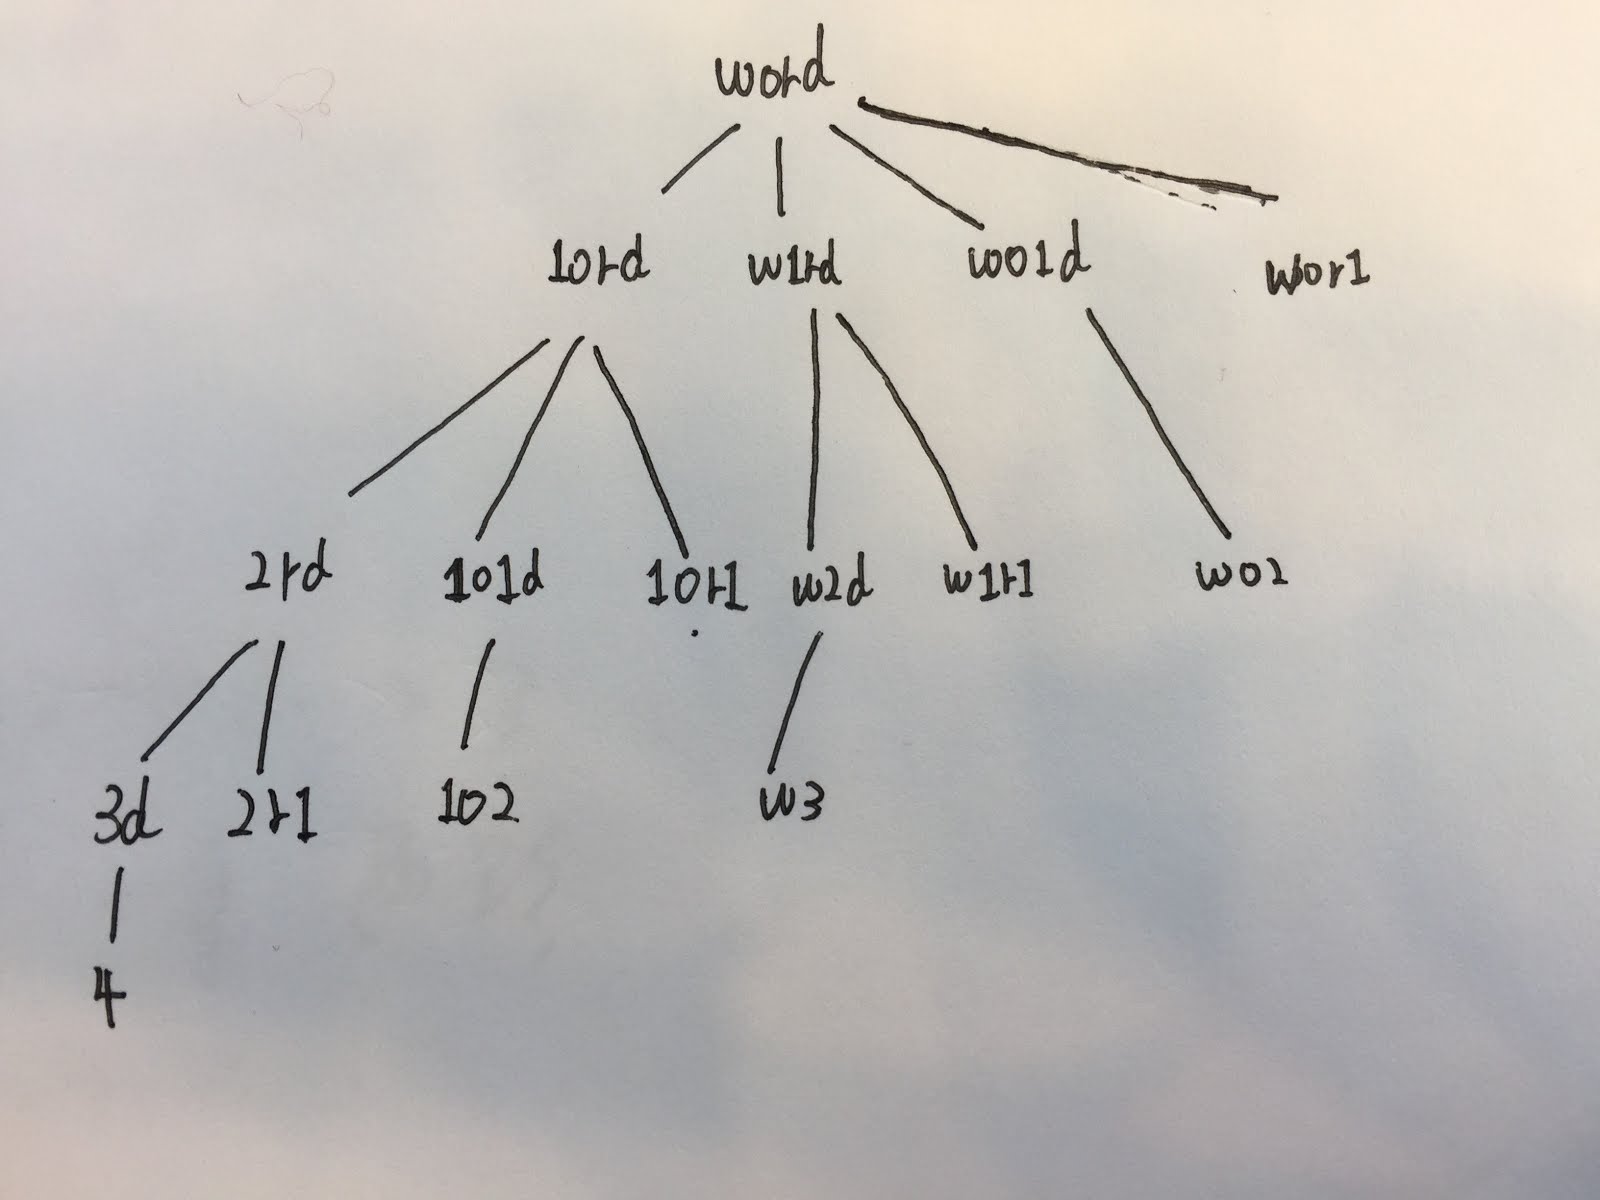 word
1ord w1rd wo1d wor1
2rd 1o1d 1or1 w2d w1r1 wo2
3d 2r1 1o2 w3
4